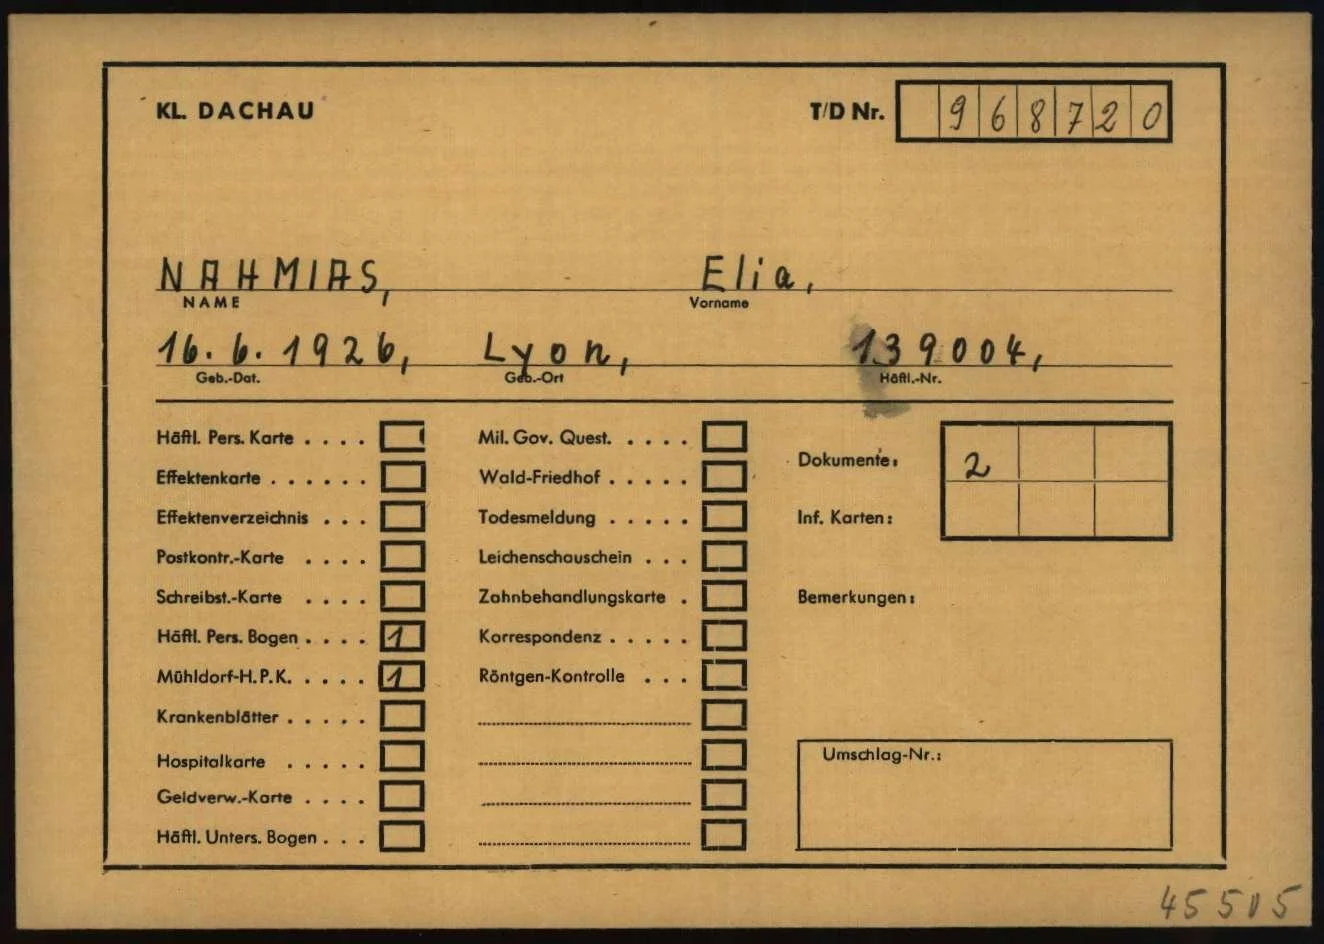 KL. DACHAU T/D Nr. 968720
NAHMIAS, Elia,
NAME Vorname
16.6.1926, Lyon, 139004,
Geb.-Dat. Geb.-Ort Häftl.-Nr.
Häftl. Pers. Karte . . . . Mil. Gov. Quest. . . . .
Dokumente: 2
Effektenkarte . . . . . . Wald-Friedhof . . . . .
Effektenverzeichnis . . . Todesmeldung . . . . . Inf. Karten:
Postkontr.-Karte . . . . Leichenschauschein . . .
Schreibst.-Karte . . . . Zahnbehandlungskarte . Bemerkungen:
Häftl. Pers. Bogen . . . . 1 Korrespondenz . . . . .
Mühldorf-H.P.K. . . . . . 1 Röntgen-Kontrolle . . .
Krankenblätter . . . . .
Hospitalkarte . . . . . Umschlag-Nr.:
Geldverw.-Karte . . . .
Häftl. Unters. Bogen . . .
45505